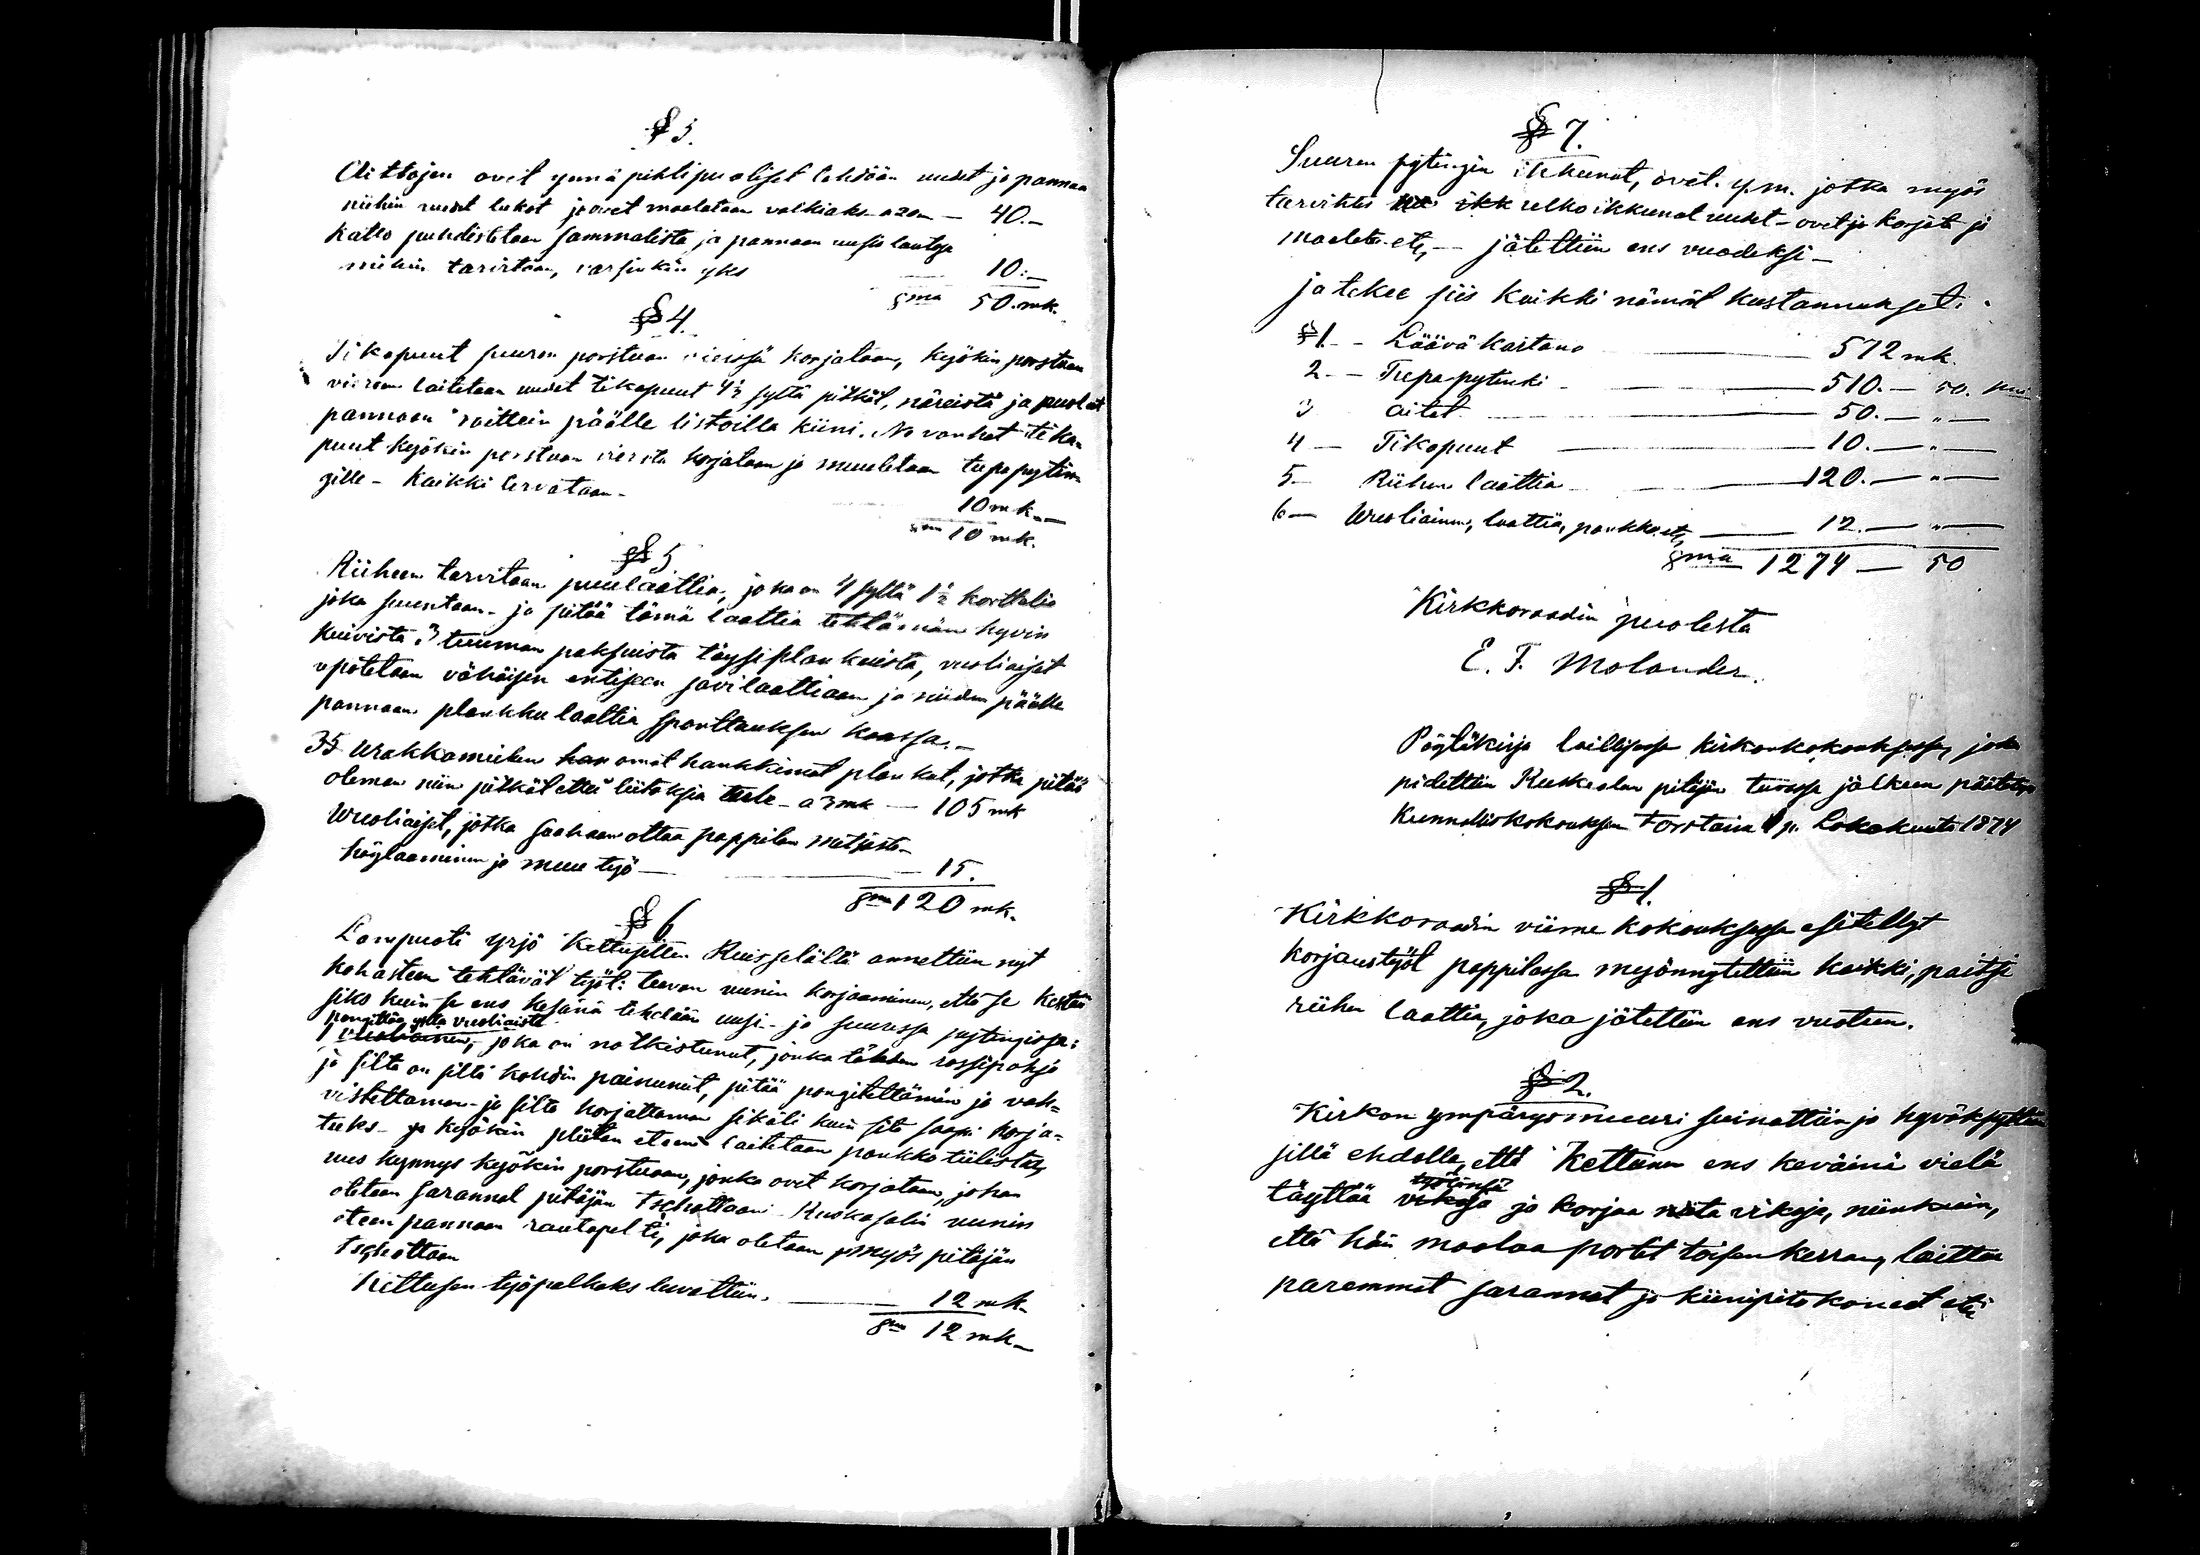 § 3.
Aittojen ovet ynnä pihtipuoliset tehdään uudet ja pannan
niihin uudet lukot ja ovet maalataan valkiaks a 20 m — 40.—
katto puhdistetaan sammalista ja pannaan uusia lautoja
mihin tarvitaan, varsinkin yks — 10.—
Sma 50. mk.
§ 4.
Tikapuut suuren porstuan vieressä korjataan, kyökin porstuan
viereen laitetaan uudet tikapuut 4½ syltä pitkät, näreistä ja puolat
pannaan roittein päälle listoilla kiini. No vanhat tika-
puut kyökin porstuan vierestä korjataan ja muutetaan tupapytin-
gille – Kaikki tervataan –
10 mk. —
Sma 10 mk.
§ 5
Riiheen tarvitaan puulaattia, joka on 4 syltä 1½ korttelia
joka suuntaan – ja pitää tämä laattia tehtämän hyvin
kuivista 3 tuuman paksuista täysiplankuista, vuoliaiset
upotetaan vähäisen entiseen savilaattiaan ja niiden päälle
pannaan plankku laattia sponttauksen kanssa. –
35 Urakkamiehen hankkimat plankut, jotka pitää
oleman niin pitkät ettei liitoksia tule – a 3 mk — 105 mk
Wuoliaiset, jotka saahaan ottaa pappilan metsästä –
höyläämine ja muu työ — 15.
Sma 120 mk.
§ 6
Lampuoti Yrjö Kettuselta Ruisselältä annettiin nyt
kohasteen tehtävät työt: tuvan uunin korjaaminen, että se kestää
siks kuin se ens kesänä tehdään uusi – ja suuressa pytingissa:
pongittaa ylla vuoliaista
1 vuoliainen, joka on notkistunut, jonka tähden rossipohja
ja silta on siltä kohdin painunut, pitää pongitettämän ja vah-
vistettaman – ja silta korjattaman sikäli kuin sitä saapi korja-
tuks – ja kyökin pliitan eteen laitetaan pankko tiilistä,
uus kynnys kyökin porstuaan, jonka ovet korjataan, johon
otetaan saranat pitäjän Ruokasalin uunin
eteen pannaan rautapelti, joka otetaan myös pitäjän
Kettusen työpalkaks luvattiin. — 12 mk.
Sma 12 mk –
§ 7.
Suuren pytingin ikkunat, ovet. y. m. jotka myös
tarvihtis ikk ulko ikkunat uudet – ovet ja korjata ja
maalata etc, — jätettiin ens vuodeksi –
ja tekee siis kaikki nämät kustannukset:
§ 1. – Läävä kartano — 572 mk.
2. – Tupa pytinki — 510. — 50. pen
3 aitat — 50. — " —
4 — Tikapuut — 10. — " —
5 — Riihen laattia — 120. — " —
6 — Wuoliainen, laattia, pankko etc, — 12. — " —
Sma 1274 — 50
Kirkkoraadin puolesta
E. F. Molander.
Pöytäkirja laillisessa kirkonkokouksessa, joka
pidettiin Ruskealan pitäjän tuvassa jälkeen päätetyn
Kunnalliskokouksen Torstaina 1 p. Lokakuuta 1874
§ 1.
Kirkkoraadin viime kokouksessa esitellyt
korjaustyöt pappilassa myönnytettiin kaikki, paitsi
riihen laattia, joka jätettiin ens vuoteen.
§ 2.
Kirkon ympärysmuuri suinattiin ja hyväksyttiin
sillä ehdolla, että Kettunen ens keväinä vielä
työtänsä
täyttää vikoja ja korjaa niitä vikoja, niinkuin,
että hän maalaa portit toisen kerran, laittaa
paremmat saranat ja kiinipito koneet etc